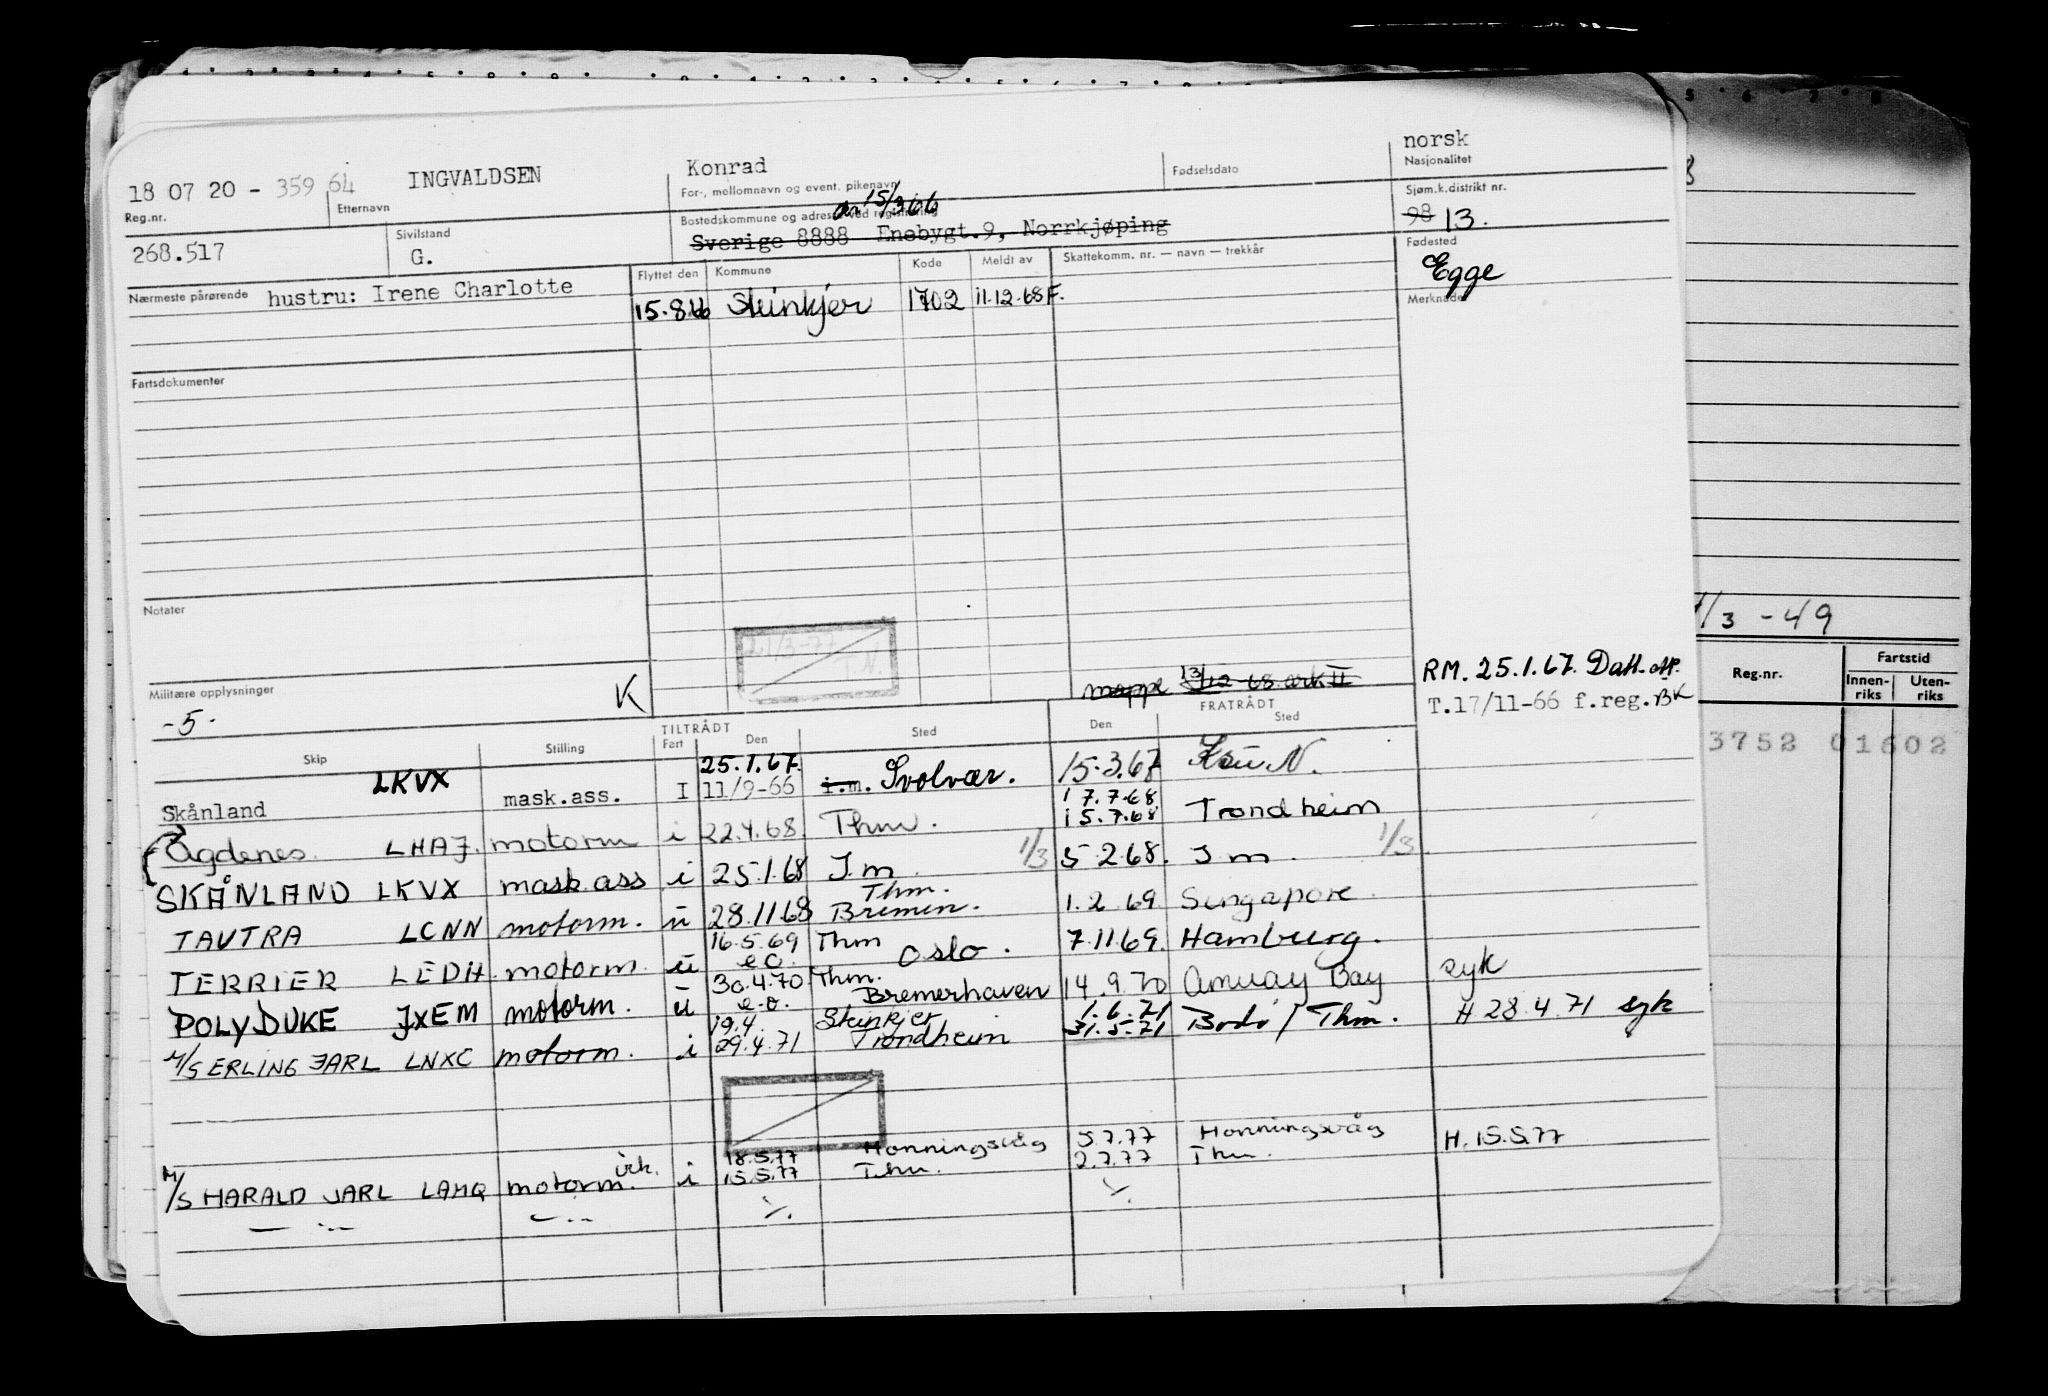 norsk
18 07 20 - 359 64 INGVALDSEN Konrad Fødselsdato Nasjonalitet
Reg.nr. Etternavn For-, mellomnavn og event. pikenavn Sjøm.k.distrikt nr.
15/3 66
268.517 Sivilstand Bostedskommune og adresse ved registrering 98 13.
G. Sverige 8888 Enebygt.9, Norrkjøping Fødested
Egge
Nærmeste pårørende hustru: Irene Charlotte Flyttet den Kommune Kode Meldt av Skattekomm. nr. — navn — trekkår Merknader
15.8.66 Steinkjer 1702 11.12.68 F.
Fartsdokumenter
Notater
21/3-77
T.N.
1/3 - 49
Reg.nr. Fartstid
Innen-riks Uten-riks
3752 01602
Militære opplysninger K mappe 13/12-68 ark II RM. 25.1.67. Datt.
-5- T.17/11-66 f.reg. BK
TILTRÅDT FRATRÅDT
Skip Stilling Fart Den Sted Den Sted
25.1.67.
Skånland LKVX mask.ass. I 11/9-66 i.m. Svolvær. 15.3.67 N.
17.7.68
Agdenes LHAJ. motorm i 22.4.68. Thm. 15.7.68 Trondheim
SKÅNLAND LKVX mask.ass i 25.1.68 I.m. 1/3 5.2.68. I m. 1/3
Thm.
TAUTRA LCNN motorm. u 28.11.68 Bremen. 1.2.69 Singapore.
16.5.69 Thm
TERRIER LEDH motorm. u e.o. Oslo. 7.11.69. Hamburg.
30.4.70 Thm.
POLYDUKE JXEM motorm. u e.o. Bremerhaven 14.9.70 Amuay Bay syk
19.4. Steinkjer 1.6.71
M/S ERLING JARL LNXC motorm. i 29.4.71 Trondheim 31.5.71 Bodø / Thm. H 28.4.71 syk
18.5.77 Honningsvåg 5.7.77 Honningsvåg H. 15.5.77
M/S HARALD JARL LAHQ motorm. i 15.5.77 Thm. 2.7.77 Thm.
— " — — " — ./. ./.